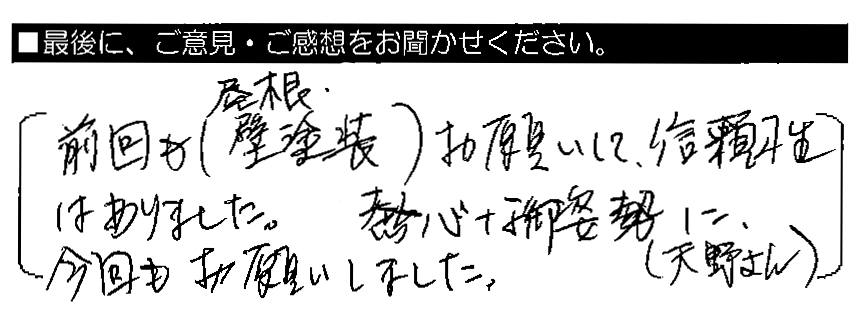 ■最後に、ご意見・ご感想をお聞かせください。
屋根・
前回も(壁塗装)お願いして、信頼性
はありました。 熱心な御姿勢に、
今回もお願いしました。 (天野さん)